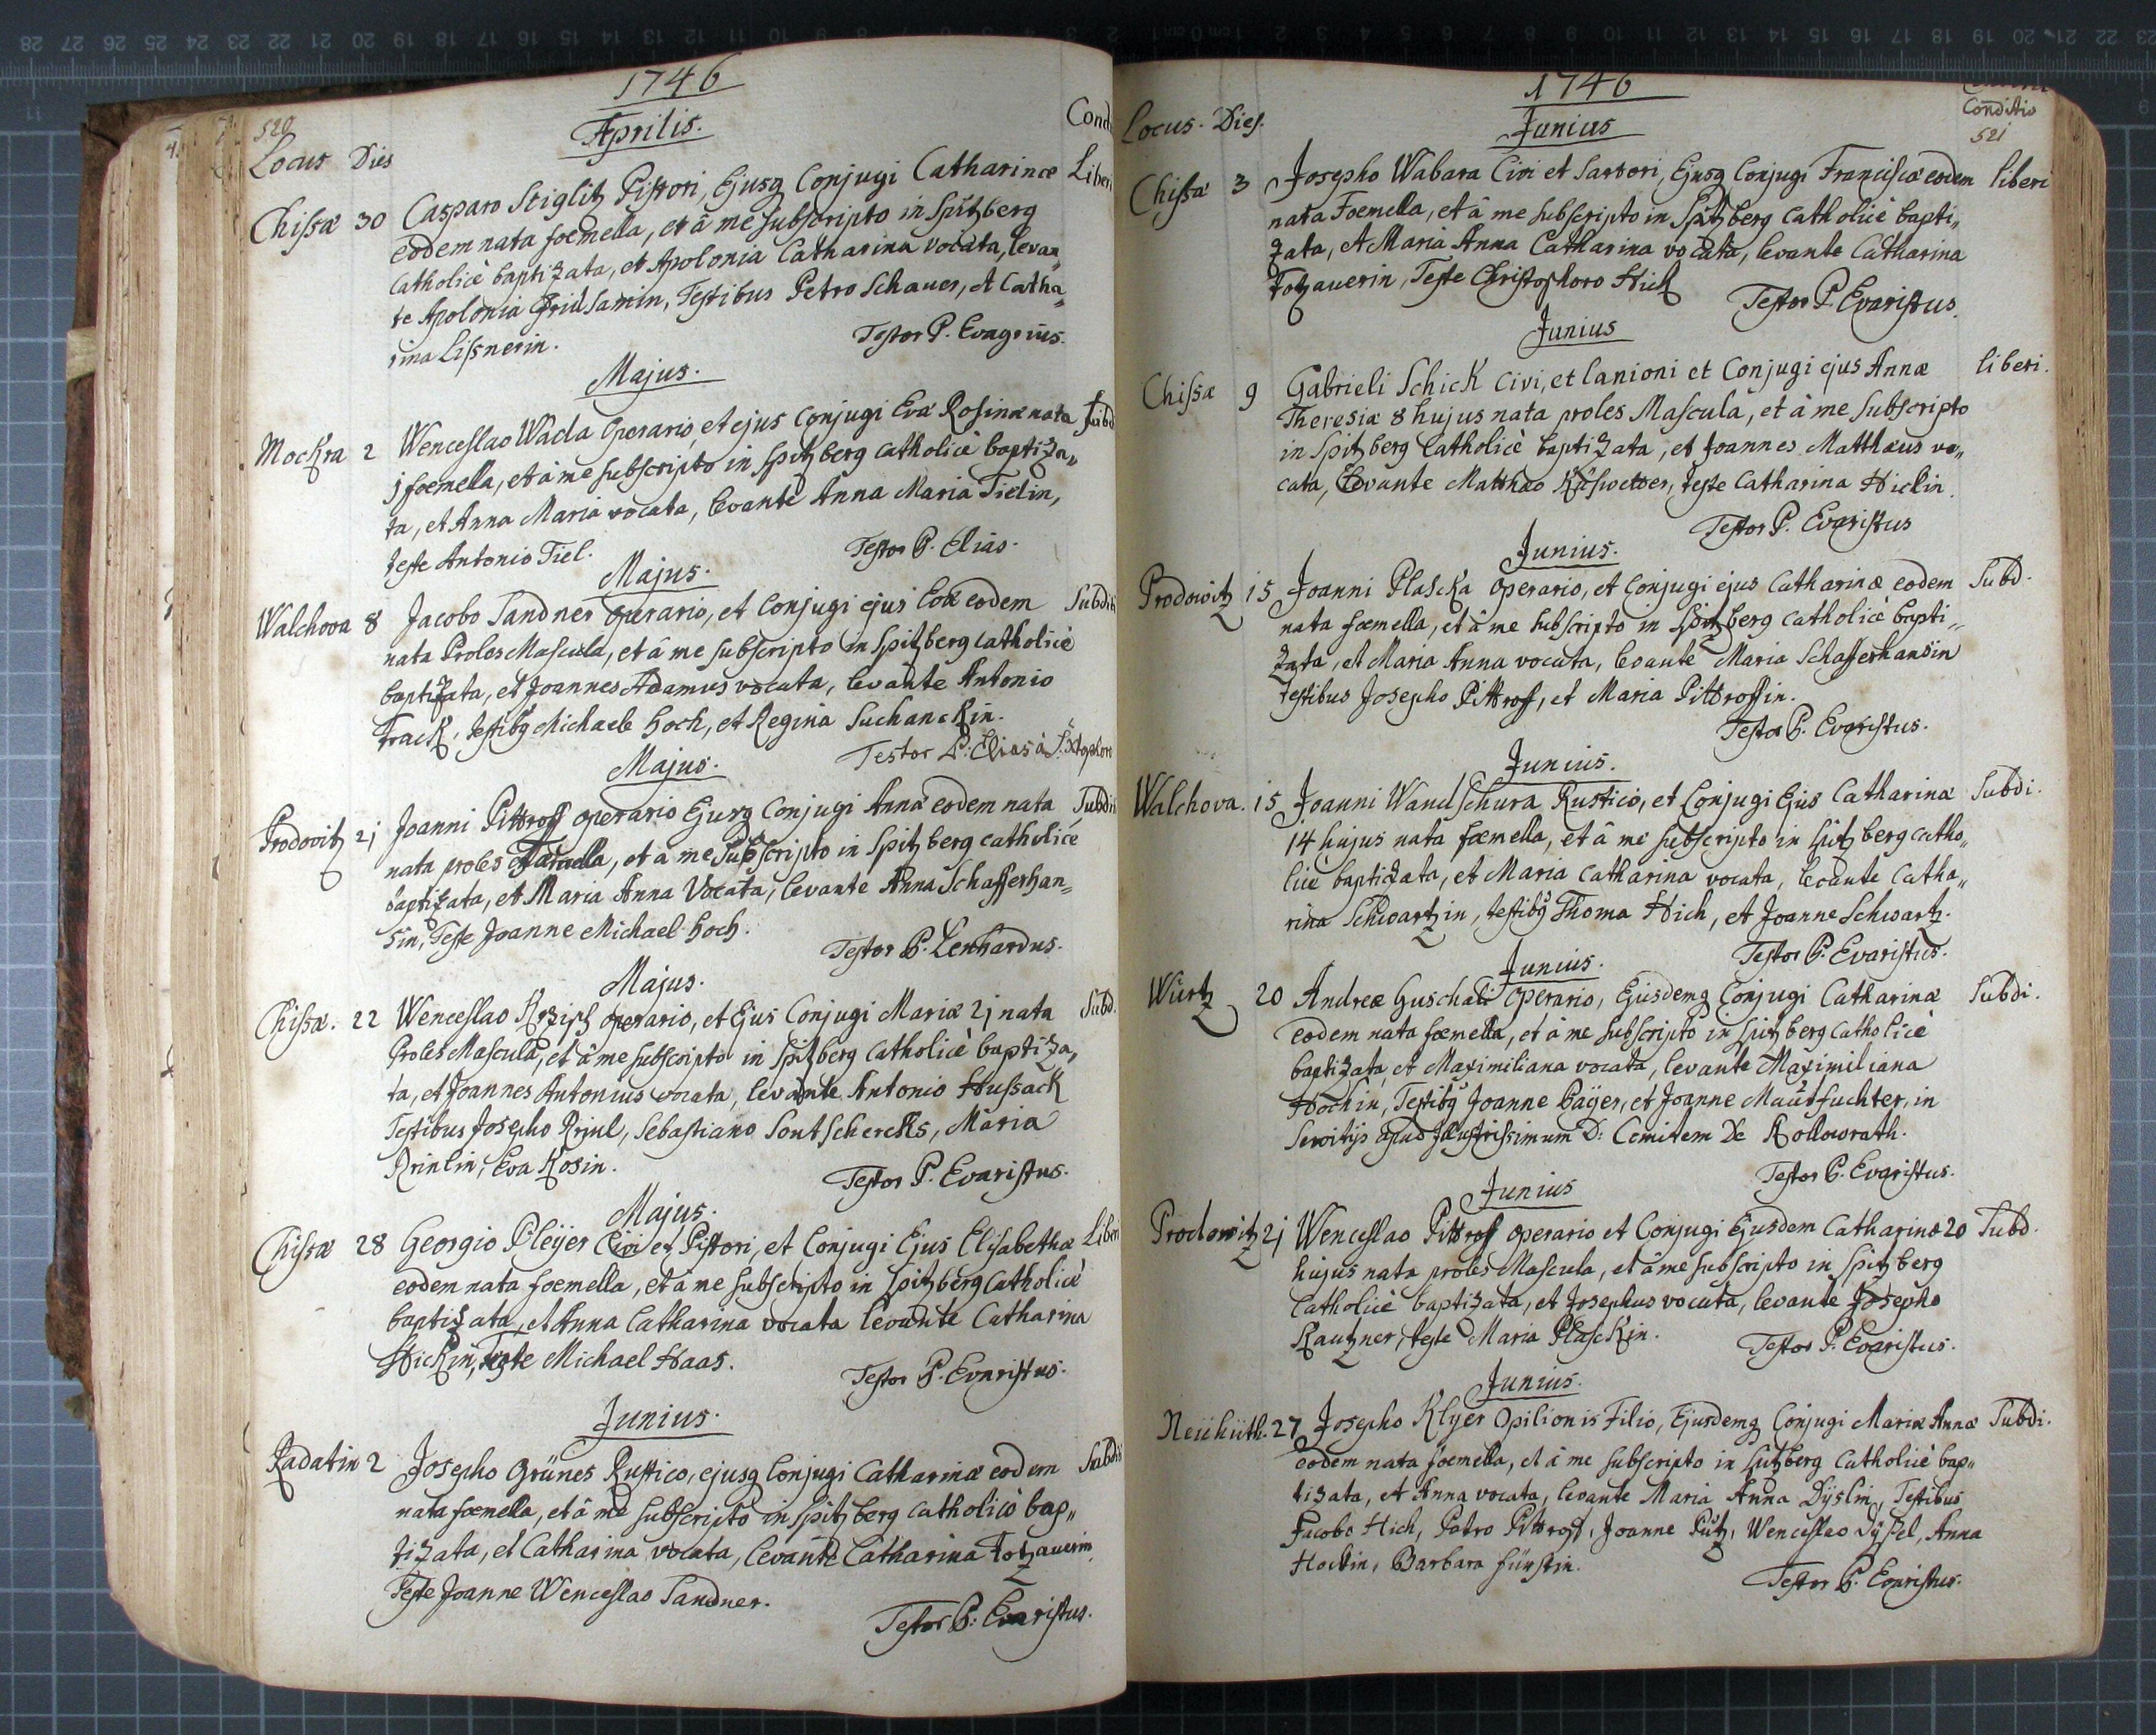 1746
Aprilis.
520
Locus Dies
Cond
Chissæ 30 Casparo Stiglitz Pistori, Ejusq Conjugi Catharinæ Liberi
eodem nata foemella, et â me subscripto in Spitzberg
Catholicè baptizata, et Apolonia Catharina vocata, levan„
te Apolonia samin, Testibus Petro Schauer, et Catha„
rina Lissnerin.
Testor P. Evagrius.
Majus.
Mockra 2 Wenceslao Wacla Operario, et ejus Conjugi Eva Rosina nata Subd
j foemella, et â me subscripto in Spitzberg catholicè baptiza„
ta, et Anna Maria vocata, levante Anna Maria Tielin,
teste Antonio Tiel.
Testor P. Elias.
Majus.
Walchova 8 Jacobo Sandner operario, et Conjugi ejus Eva eodem Subdit
nata Proles Mascula, et â me subscripto in Spitzberg catholicè
baptizata, et Joannes Adamus vocata, levante Antonio
Track, testibq Michaele Hoch, et Regina Suchanckin.
Testor P: Elias à S:
Majus.
Prodovitz 2j Joanni Pittroff operario Ejusq Conjugi Anna eodem nata Subdi
nata proles, et a me Subscripto in Spitzberg catholicè
baptizata, et Maria Anna Vocata, levante Anna Schafferhan„
sin, Teste Joanne Michael Hoch.
Testor P. Lenhardus.
Majus.
Chissæ. 22 Wenceslao Krziph operario, et Ejus Conjugi Mariæ 2j nata Subd.
Proles Mascula, et â me subscripto in Spitzberg Catholicè baptiza„
ta, et Joannes Antonius vocata, levante Antonio Hussack
Testibus Josepho, Sebastiano Sontscherecks, Maria
Eva Kosin.
Testor P. Evaristus.
Majus.
Chissæ 28 Georgio Pleyer Civi et Pistori, et Conjugi Ejus Elisabethæ Liberi
eodem nata foemella, et â me subscripto in Spitzberg Catholicè
baptizata, et Anna Catharina vocata levante Catharina
Hickin, teste Michael Haas.
Testor P. Evaristus.
Junius.
Radatin 2 Josepho Grünes Rustico, ejusq Conjugi Catharinæ eodem Subdi
nata foemella, et â me subscripto in Spitzberg catholicè bap„
tizata, et Catharina vocata, levante Catharina Totzauerin,
Teste Joanne Wenceslao Sandner.
Testor P: Evaristus.
1746
Conditio
521
Locus. Dies.
Junius
Chissæ 3 Josepho Wabara Civi et Sartori, Ejusq Conjugi Franciscæ eodem liberi
nata Foemella, et â me subscripto in Spitzberg catholicè bapti„
zata, et Maria Anna Catharina vocata, levante Catharina
Totzauerin, Teste Christophoro Hick
Testor P. Evaristus.
Junius
Chissæ 9 Gabrieli Schick Civi, et lanioni et Conjugi ejus Annæ liberi.
Theresiæ 8 hujus nata proles Mascula, et â me subscripto
in Spitzberg Catholicè baptizata, et Joannes Matthæus vo„
cata, levante Matthæo Küswetter, teste Catharina Hickin.
Testor P. Evaristus
Junius.
Prodowitz 15 Joanni Plascka Operario, et Conjugi ejus Catharinæ eodem Subd.
nata foemella, et â me subscripto in Spitzberg catholicè bapti„
zata, et Maria Anna vocata, levante Maria Schafferhansin
testibus Josepho Pittroff, et Maria Pittroffin.
Testor P. Evaristus.
Junius.
Walchova. 15 Joanni Wandschura Rustico, et Conjugi Ejus Catharina Subdi.
14 hujus nata foemella, et â me subscripto in Spitzberg catho„
licè baptizata, et Maria Catharina vocata, levante Catha„
rina Schwartzin, testibq Thoma Hich, et Joanne Schwartz.
Testor P. Evaristus.
Junius.
Würtz 20 Andreæ Guschali Operario, Ejusdemq Conjugi Catharinæ Subdi.
eodem nata foemella, et â me subscripto in Spitzberg catholicè
baptizata, et Maximiliana vocata, levante Maximiliana
Hochin, Testibq Joanne Payer, et Joanne Mautfuchter, in
servitijs apud Illustrissimum D: Comitem De Kollowrath.
Testor P. Evaristus.
Junius
Prodowitz 2j Wenceslao Pittroff operario et Conjugi Ejusdem Catharinæ 20 Subd.
hujus nata proles Mascula, et â me subscripto in Spitzberg
Catholicè baptizata, et Josephus vocata, levante Josepho
Kautzner, teste Maria Plasckin.
Testor P. Evaristus.
Junius.
Neühüth. 27 Josepho Klyer Opilionis Filio, Ejusdemq Conjugi Mariæ Annæ Subdi.
eodem nata foemella, et â me subscripto in Spitzberg Catholicè bap„
tizata, et Anna vocata, levante Maria Anna Dyslin, Testibus
Jacobo Hich, Petro Pittroff, Joanne Pütz, Wenceslao Dysel, Anna
Hockin, Barbara Fünstin.
Testor P. Evaristus.